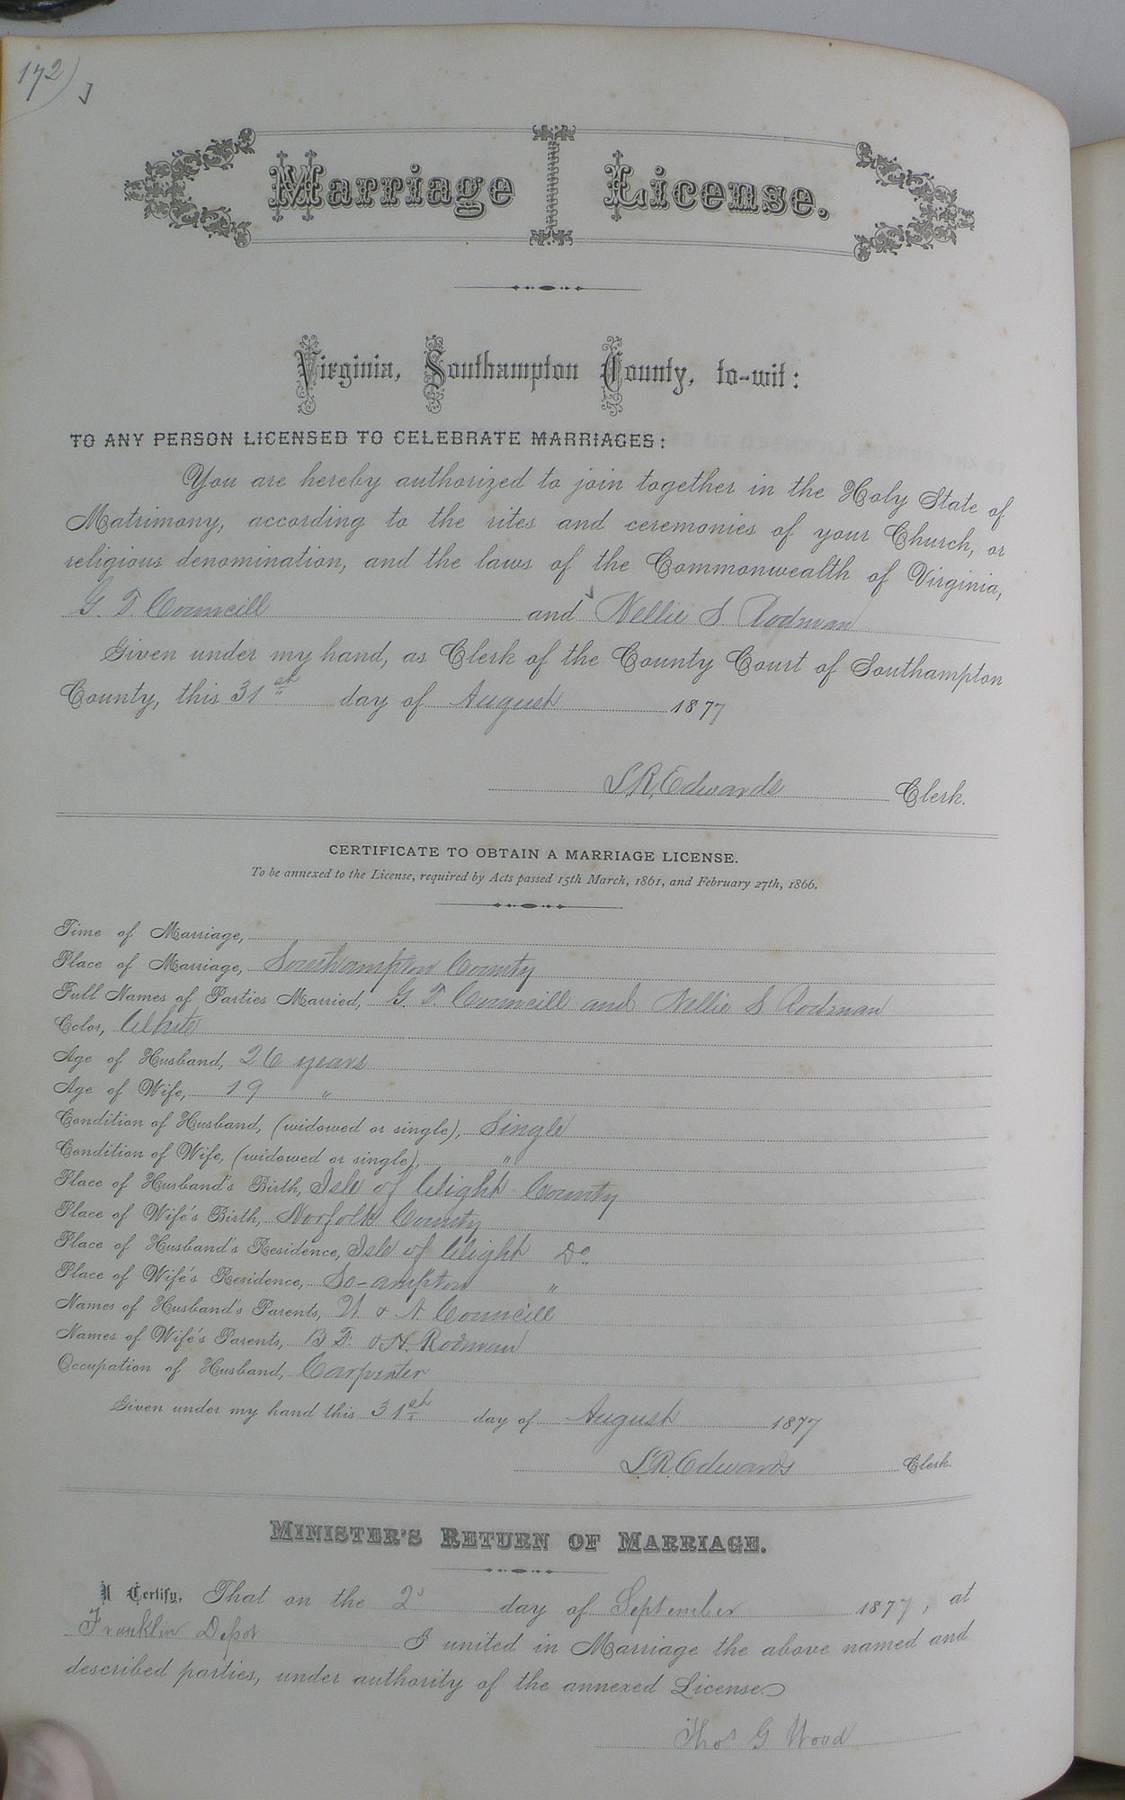 172)
Marriage License.
Virginia, Southampton County, to-wit:
TO ANY PERSON LICENSED TO CELEBRATE MARRIAGES:
You are hereby authorized to join together in the Holy State of
Matrimony, according to the rites and ceremonies of your Church, or
religious denomination, and the laws of the Commonwealth of Virginia,
G. T. Councill and Nellie S. Rodman
Given under my hand, as Clerk of the County Court of Southampton
County, this 31st day of August 1877
L.R. Edwards Clerk.
CERTIFICATE TO OBTAIN A MARRIAGE LICENSE.
To be annexed to the License, required by Acts passed 15th March, 1861, and February 27th, 1866.
Time of Marriage,
Place of Marriage, Southampton County
Full Names of Parties Married, G. T. Councill and Nellie S Rodman
Color, White
Age of Husband, 26 years
Age of Wife, 19 "
Condition of Husband, (widowed or single), Single
Condition of Wife, (widowed or single), "
Place of Husband's Birth, Isle of Wight County
Place of Wife's Birth, Norfolk County
Place of Husband's Residence, Isle of Wight Do.
Place of Wife's Residence, So-ampton "
Names of Husband's Parents, & A. Councill
Names of Wife's Parents, B F. Rodman
Occupation of Husband, Carpenter
Given under my hand this 31st day of August 1877
L.R. Edwards Clerk.
MINISTER'S RETURN OF MARRIAGE.
I Certify, That on the 2d day of September 1877, at
Franklin Depot I united in Marriage the above named and
described parties, under authority of the annexed License.
Thos G Wood